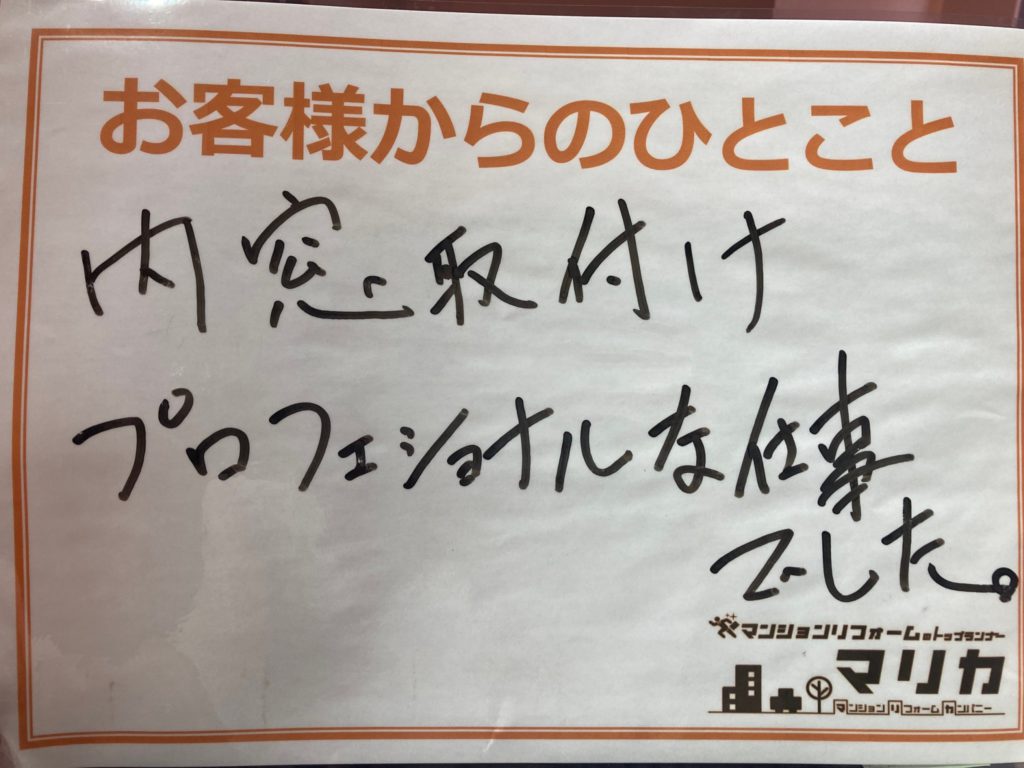 お客様からのひとこと
内窓取付け
プロフェショナルな仕事
でした。
マンションリフォームのトップランナー
マリカ
マンションリフォームカンパニー